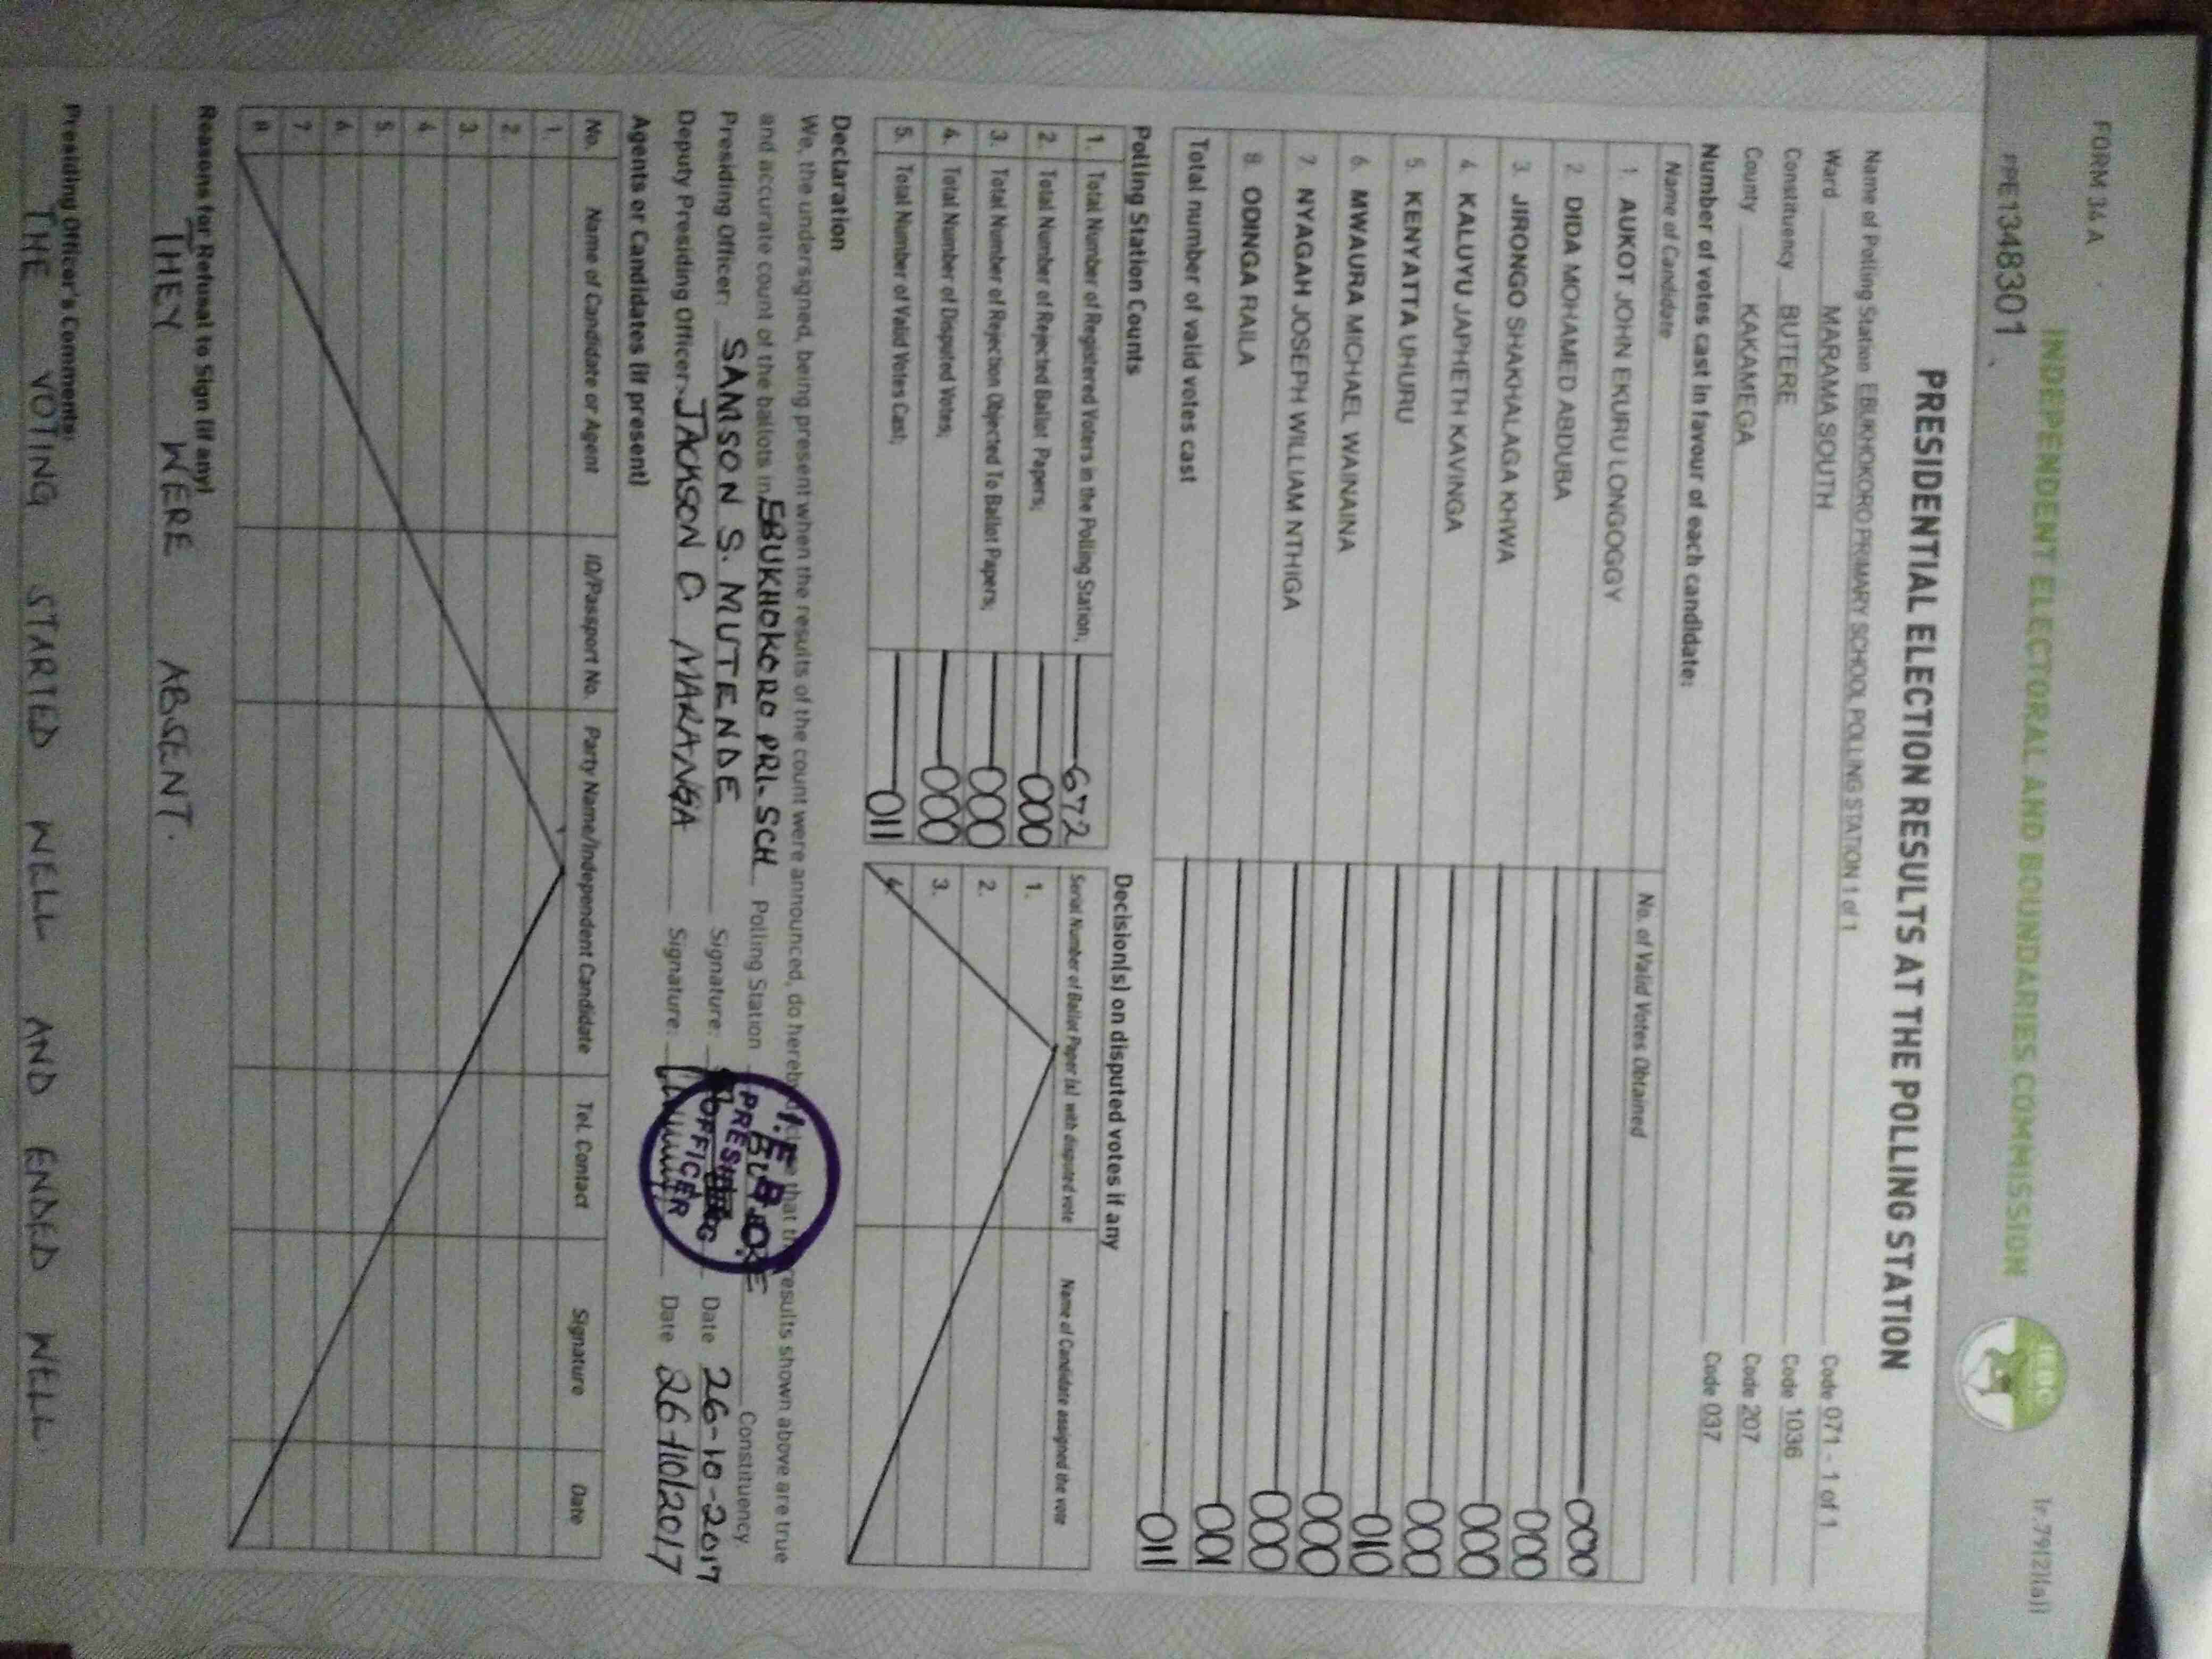 FORM 34 A
r.79(2)(a)
INDEPENDENT ELECTORAL AND BOUNDARIES COMMISSION
IEBC
PPE1348301
PRESIDENTIAL ELECTION RESULTS AT THE POLLING STATION
Name of Polling Station EBUKHOKORO PRIMARY SCHOOL POLLING STATION 1 of 1 Code 071 - 1 of 1
Ward MARAMA SOUTH Code 1036
Constituency BUTERE Code 207
County KAKAMEGA Code 037
Number of votes cast in favour of each candidate:
Name of Candidate No. of Valid Votes Obtained
1. AUKOT JOHN EKURU LONGOGGY 000
2. DIDA MOHAMED ABDUBA 000
3. JIRONGO SHAKHALAGA KHWA 000
4. KALUYU JAPHETH KAVINGA 000
5. KENYATTA UHURU 010
6. MWAURA MICHAEL WAINAINA 000
7. NYAGAH JOSEPH WILLIAM NTHIGA 000
8. ODINGA RAILA 001
Total number of valid votes cast 011
Polling Station Counts
1. Total Number of Registered Voters in the Polling Station; 672
2. Total Number of Rejected Ballot Papers; 000
3. Total Number of Rejection Objected To Ballot Papers; 000
4. Total Number of Disputed Votes; 000
5. Total Number of Valid Votes Cast; 011
Decision(s) on disputed votes if any
Serial Number of Ballot Paper (s) with disputed vote Name of Candidate assigned the vote
1.
2.
3.
4.
Declaration
We, the undersigned, being present when the results of the count were announced, do hereby that the results shown above are true
and accurate count of the ballots in EBUKHOKORO PRI. SCH Polling Station Constituency
Presiding Officer: SAMSON S. MUTENDE Signature: Date 26-10-2017
Deputy Presiding Officer: JACKSON O MARANGA Signature: Date 26/10/2017
PRESIDING
OFFICER
Agents or Candidates (if present)
No. Name of Candidate or Agent ID/Passport No. Party Name/Independent Candidate Tel. Contact Signature Date
1.
2.
3.
4.
5.
6.
7.
8.
Reasons for Refusal to Sign (if any)
THEY WERE ABSENT.
Presiding Officer's Comments:
THE VOTING STARTED WELL AND ENDED WELL